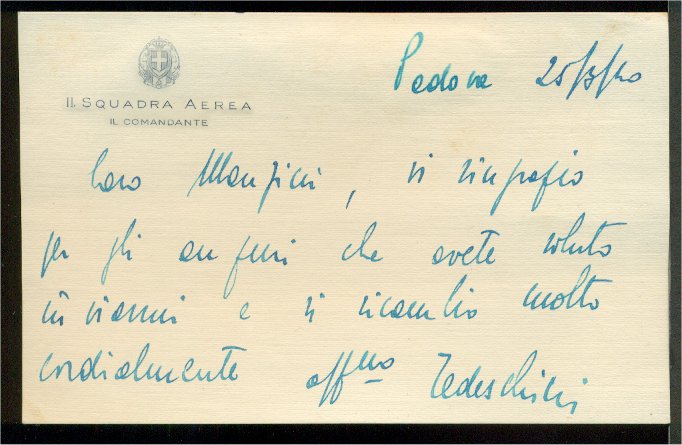 II. SQUADRA AEREA
IL COMANDANTE
Padova 25/3/40
Caro Manzini, vi ringrazio
per gli auguri che avete voluto
inviarmi e vi ricambio molto
cordialmente aff.mo Tedeschini